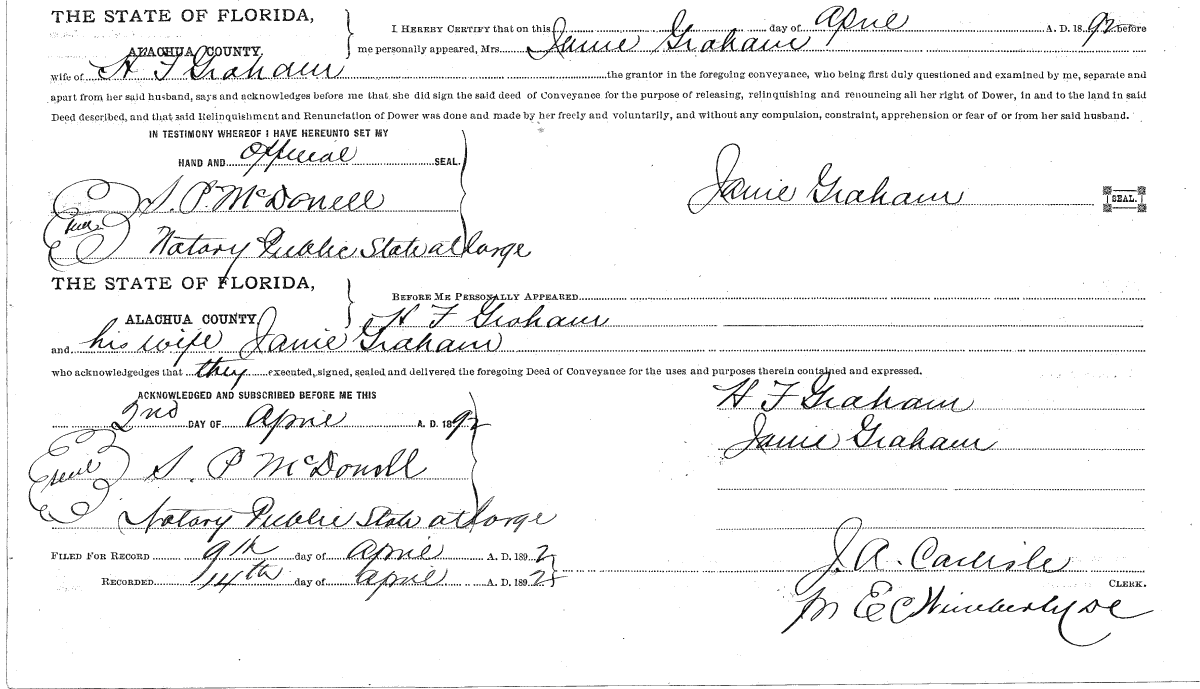 THE STATE OF FLORIDA,
ALACHUA COUNTY.
I HEREBY CERTIFY that on this day of April A. D. 1892 before
me personally appeared, Mrs. Janie Graham
wife of H F Graham the grantor in the foregoing conveyance, who being first duly questioned and examined by me, separate and
apart from her said husband, says and acknowledges before me that she did sign the said deed of Conveyance for the purpose of releasing, relinquishing and renouncing all her right of Dower, in and to the land in said
Deed described, and that said Relinquishment and Renunciation of Dower was done and made by her freely and voluntarily, and without any compulsion, constraint, apprehension or fear of or from her said husband.
IN TESTIMONY WHEREOF I HAVE HEREUNTO SET MY
HAND AND Official SEAL.
S. P. McDonell
Seal
Notary Public State at large
Janie Graham
SEAL.
THE STATE OF FLORIDA,
ALACHUA COUNTY
BEFORE ME PERSONALLY APPEARED
H F Graham
and his wife Janie Graham
who acknowledgedges that they executed, signed, sealed and delivered the foregoing Deed of Conveyance for the uses and purposes therein contained and expressed.
ACKNOWLEDGED AND SUBSCRIBED BEFORE ME THIS
2nd DAY OF April A. D. 1892
Seal
S. P McDonell
Notary Public State at large
H F Graham
Janie Graham
FILED FOR RECORD 9th day of April A. D. 1892
RECORDED 14th day of April A. D. 1892
J. A. Carlisle
CLERK.
E C Wimberly DC